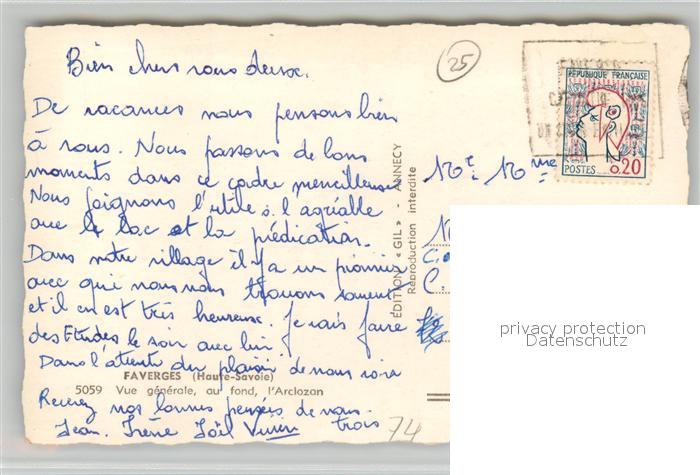 Bien chers vous deux.
25
De vacances nous pensons bien
à vous. Nous passons de bons
moments dans ce cadre merveilleux
Nous joignons l'utile à l'agréable
avec le lac et la prédication.
Dans notre village il y a un pionnier
avec qui nous nous trouvons souvent
et il en est très heureux. Je vais faire
des Etudes le soir avec lui.
Dans l'attente du plaisir de vous voir
Recevez nos bonnes pensées de nous
trois
Jean. Irène Joël
FAVERGES (Haute-Savoie)
5059 Vue générale, au fond, l'Arclozan
74
ÉDITION « GIL » - ANNECY
Reproduction interdite
Mme
RÉPUBLIQUE FRANÇAISE
POSTES 0,20
privacy protection
Datenschutz